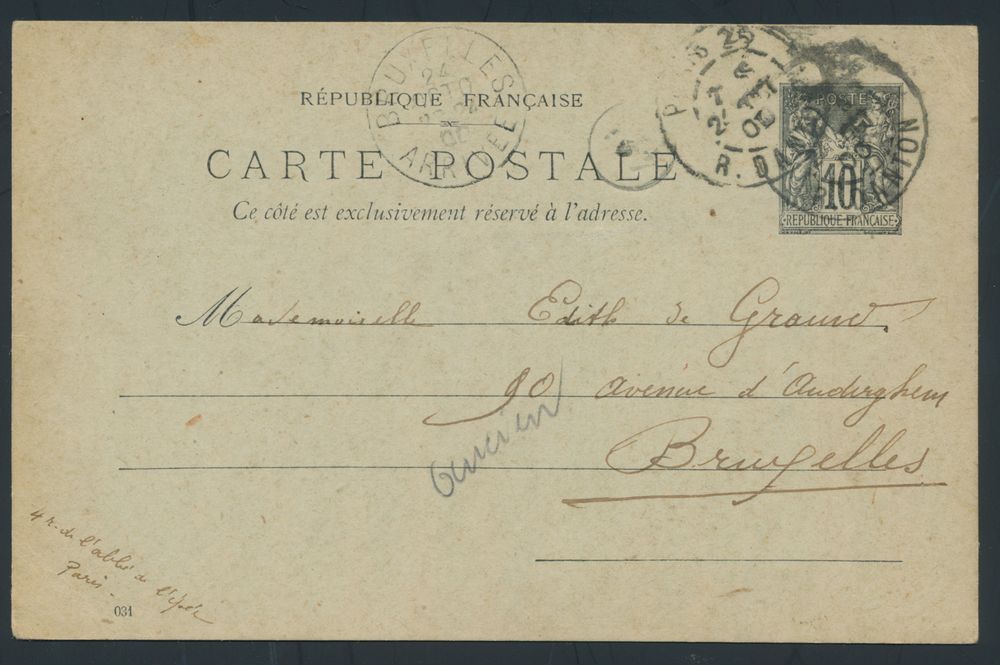 BRUXELLES
24
ARRIVEE
RÉPUBLIQUE FRANÇAISE
CARTE POSTALE
Ce côté est exclusivement réservé à l'adresse.
PARIS 25
R. DANTON
POSTES
10
RÉPUBLIQUE FRANÇAISE
Mademoiselle Edith de Graund.
90 avenue d'Auderghem
Bruxelles
4 r. de l'abbé de l'épée
Paris
031